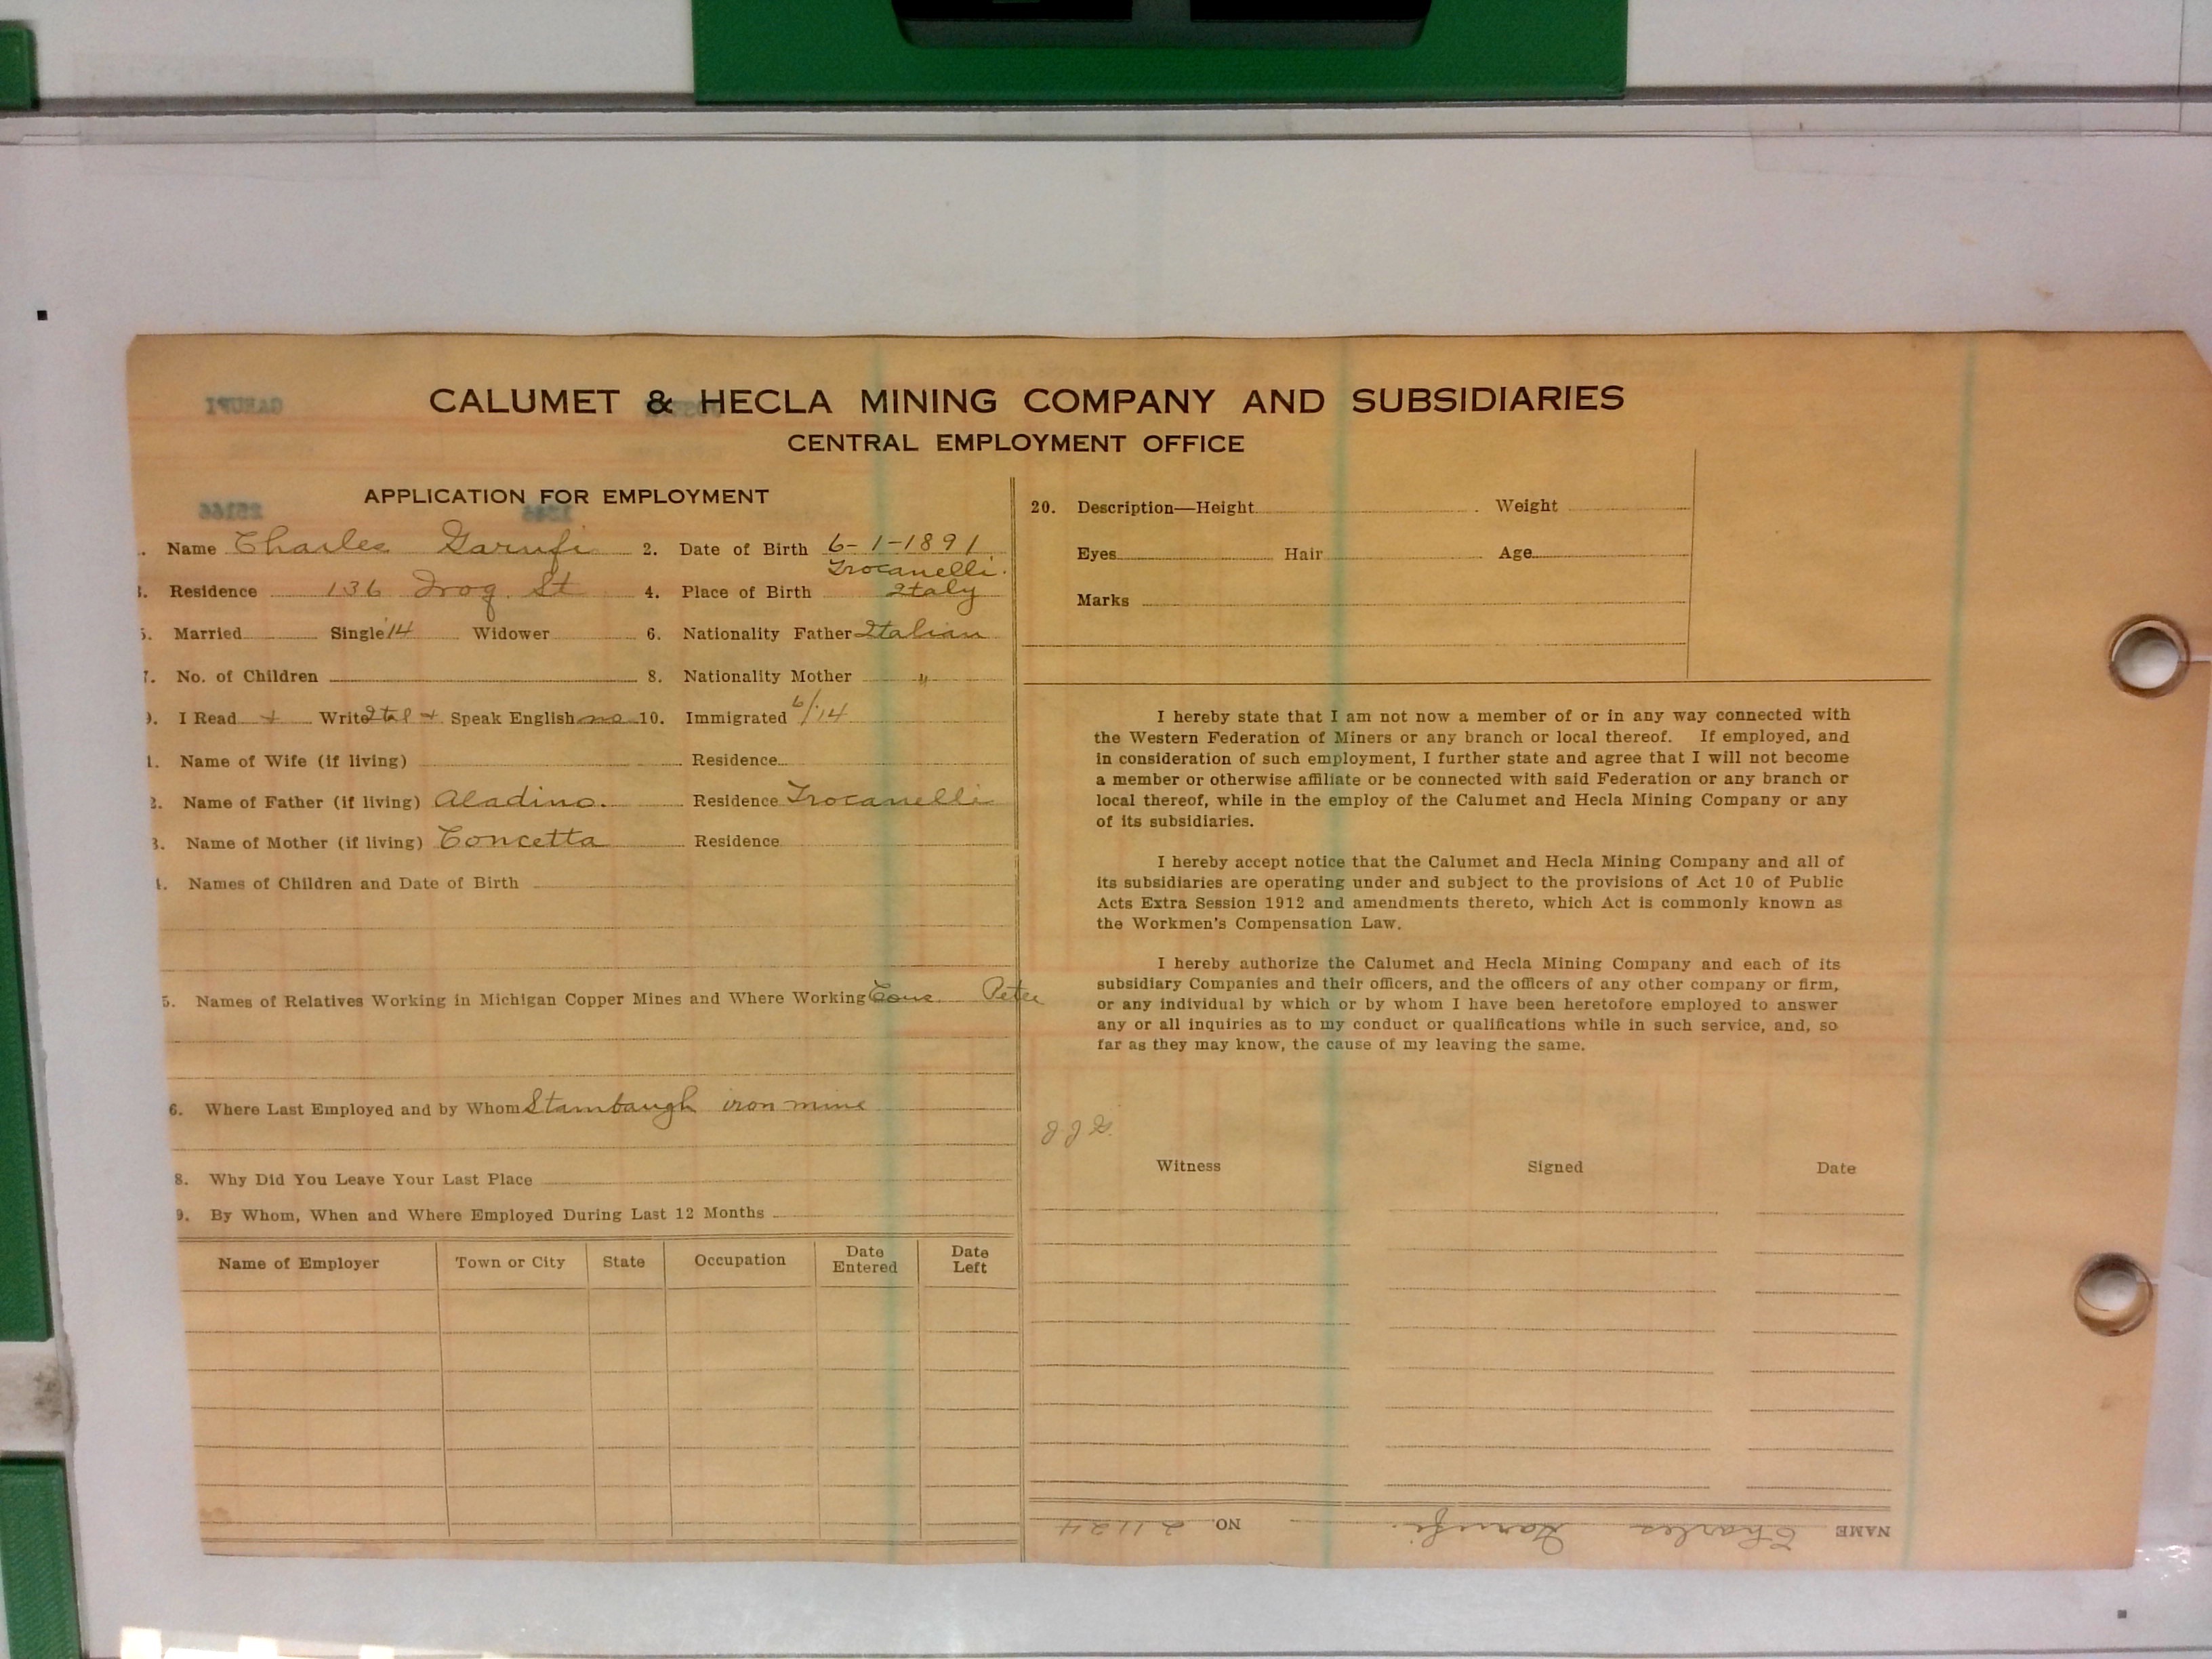 CALUMET & HECLA MINING COMPANY AND SUBSIDIARIES
CENTRAL EMPLOYMENT OFFICE
APPLICATION FOR EMPLOYMENT
. Name Charles Garufi 2. Date of Birth 6-1-1891
Trocanelli.
3. Residence 136 Frog St 4. Place of Birth Italy
5. Married Single '14 Widower 6. Nationality Father Italian
7. No. of Children 8. Nationality Mother "
9. I Read + Write Ital + Speak English no 10. Immigrated 6/'14
1. Name of Wife (if living) Residence
2. Name of Father (if living) Aladino. Residence Trocanelli
3. Name of Mother (if living) Concetta Residence
4. Names of Children and Date of Birth
5. Names of Relatives Working in Michigan Copper Mines and Where Working Cous. Peter
6. Where Last Employed and by Whom Stambaugh iron mine
8. Why Did You Leave Your Last Place
9. By Whom, When and Where Employed During Last 12 Months
Name of Employer Town or City State Occupation Date Entered Date Left
20. Description—Height Weight
Eyes Hair Age
Marks
I hereby state that I am not now a member of or in any way connected with
the Western Federation of Miners or any branch or local thereof. If employed, and
in consideration of such employment, I further state and agree that I will not become
a member or otherwise affiliate or be connected with said Federation or any branch or
local thereof, while in the employ of the Calumet and Hecla Mining Company or any
of its subsidiaries.
I hereby accept notice that the Calumet and Hecla Mining Company and all of
its subsidiaries are operating under and subject to the provisions of Act 10 of Public
Acts Extra Session 1912 and amendments thereto, which Act is commonly known as
the Workmen's Compensation Law.
I hereby authorize the Calumet and Hecla Mining Company and each of its
subsidiary Companies and their officers, and the officers of any other company or firm,
or any individual by which or by whom I have been heretofore employed to answer
any or all inquiries as to my conduct or qualifications while in such service, and, so
far as they may know, the cause of my leaving the same.
Witness Signed Date
NAME Charles Garufi NO. 21124